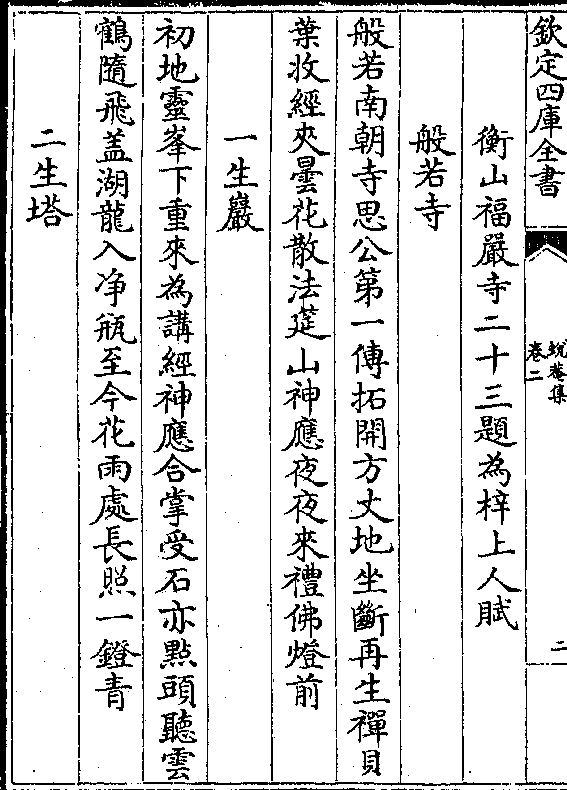 欽定四庫全書
蛻菴集
卷二
二
衡山福嚴寺二十三題為梓上人賦
般若寺
般若南朝寺思公第一傳拓開方丈地坐斷再生禪貝
葉收經夾曇花散法莚山神應夜夜來禮佛燈前
一生巖
初地靈峯下重來為講經神應合掌受石亦㸃頭聽雲
鶴隨飛盖湖龍入净瓶至今花雨處長照一鐙青
二生塔